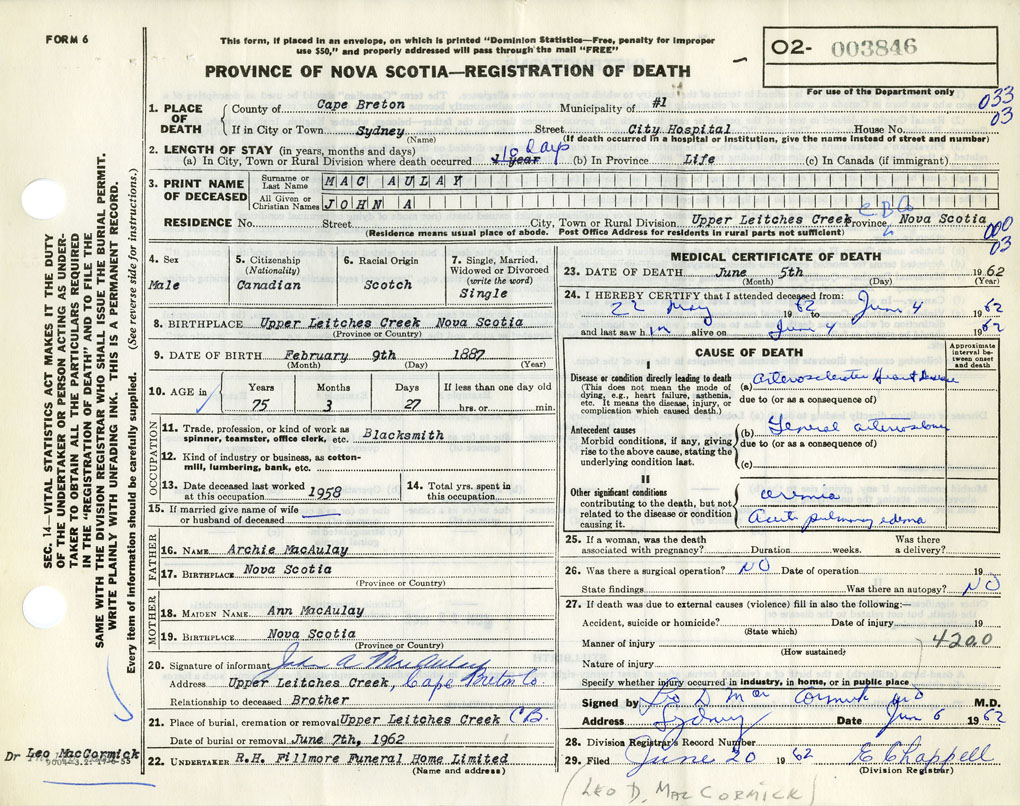 FORM 6
This form, if placed in an envelope, on which is printed "Dominion Statistics—Free, penalty for improper
use $50," and properly addressed will pass through the mail "FREE"
PROVINCE OF NOVA SCOTIA—REGISTRATION OF DEATH
02- 003846
For use of the Department only
033
03
1. PLACE OF DEATH
County of Cape Breton Municipality of #1
If in City or Town Sydney Street City Hospital House No.
(Name) (If death occurred in a hospital or institution, give the name instead of street and number)
2. LENGTH OF STAY (in years, months and days)
(a) In City, Town or Rural Division where death occurred 1 year 10 days (b) In Province Life (c) In Canada (if immigrant)
3. PRINT NAME OF DECEASED
Surname or Last Name MAC AULAY
All Given or Christian Names JOHN A
RESIDENCE No. Street City, Town or Rural Division Upper Leitches Creek Province Nova Scotia
C B Co
(Residence means usual place of abode. Post Office Address for residents in rural parts not sufficient)
000
03
4. Sex
Male
5. Citizenship
(Nationality)
Canadian
6. Racial Origin
Scotch
7. Single, Married,
Widowed or Divorced
(write the word)
Single
8. BIRTHPLACE Upper Leitches Creek Nova Scotia
(Province or Country)
9. DATE OF BIRTH February 9th 1887
(Month) (Day) (Year)
10. AGE in Years Months Days If less than one day old
75 3 27 hrs. or min.
OCCUPATION
11. Trade, profession, or kind of work as
spinner, teamster, office clerk, etc. Blacksmith
12. Kind of industry or business, as cotton-
mill, lumbering, bank, etc.
13. Date deceased last worked
at this occupation 1958
14. Total yrs. spent in
this occupation
15. If married give name of wife
or husband of deceased
FATHER
16. NAME Archie MacAulay
17. BIRTHPLACE Nova Scotia
(Province or Country)
MOTHER
18. MAIDEN NAME Ann MacAulay
19. BIRTHPLACE Nova Scotia
(Province or Country)
20. Signature of informant John A MacAulay
Address Upper Leitches Creek, Cape Breton Co
Relationship to deceased Brother
21. Place of burial, cremation or removal Upper Leitches Creek CB.
Date of burial or removal June 7th, 1962
22. UNDERTAKER R.H. Fillmore Funeral Home Limited
(Name and address)
MEDICAL CERTIFICATE OF DEATH
23. DATE OF DEATH June 5th 1962
(Month) (Day) (Year)
24. I HEREBY CERTIFY that I attended deceased from:
22 May 1962 to June 4 1962
and last saw him alive on June 4 1962
CAUSE OF DEATH
Approximate
interval be-
tween onset
and death
I
Disease or condition directly leading to death
(This does not mean the mode of
dying, e.g., heart failure, asthenia,
etc. It means the disease, injury, or
complication which caused death.)
(a) Arteriosclerotic Heart Disease
due to (or as a consequence of)
Antecedent causes
Morbid conditions, if any, giving
rise to the above cause, stating the
underlying condition last.
(b) General arteriosclerosis
due to (or as a consequence of)
(c)
II
Other significant conditions
contributing to the death, but not
related to the disease or condition
causing it.
uremia
Acute pulmonary edema
25. If a woman, was the death Was there
associated with pregnancy? Duration weeks. a delivery?
26. Was there a surgical operation? NO Date of operation 19
State findings Was there an autopsy? NO
27. If death was due to external causes (violence) fill in also the following:—
Accident, suicide or homicide? Date of injury 19
(State which)
Manner of injury 4200
(How sustained)
Nature of injury
Specify whether injury occurred in industry, in home, or in public place
Signed by Leo D MacCormick MD M.D.
Address Sydney Date Jun 6 1962
28. Division Registrar's Record Number
29. Filed June 20 1962 E Chappell
(Division Registrar)
(LEO D. MACCORMICK)
SEC. 14—VITAL STATISTICS ACT MAKES IT THE DUTY
OF THE UNDERTAKER OR PERSON ACTING AS UNDER-
TAKER TO OBTAIN ALL THE PARTICULARS REQUIRED
IN THE "REGISTRATION OF DEATH" AND TO FILE THE
SAME WITH THE DIVISION REGISTRAR WHO SHALL ISSUE THE BURIAL PERMIT.
WRITE PLAINLY WITH UNFADING INK. THIS IS A PERMANENT RECORD.
Every item of information should be carefully supplied. (See reverse side for instructions.)
Dr Leo MacCormick